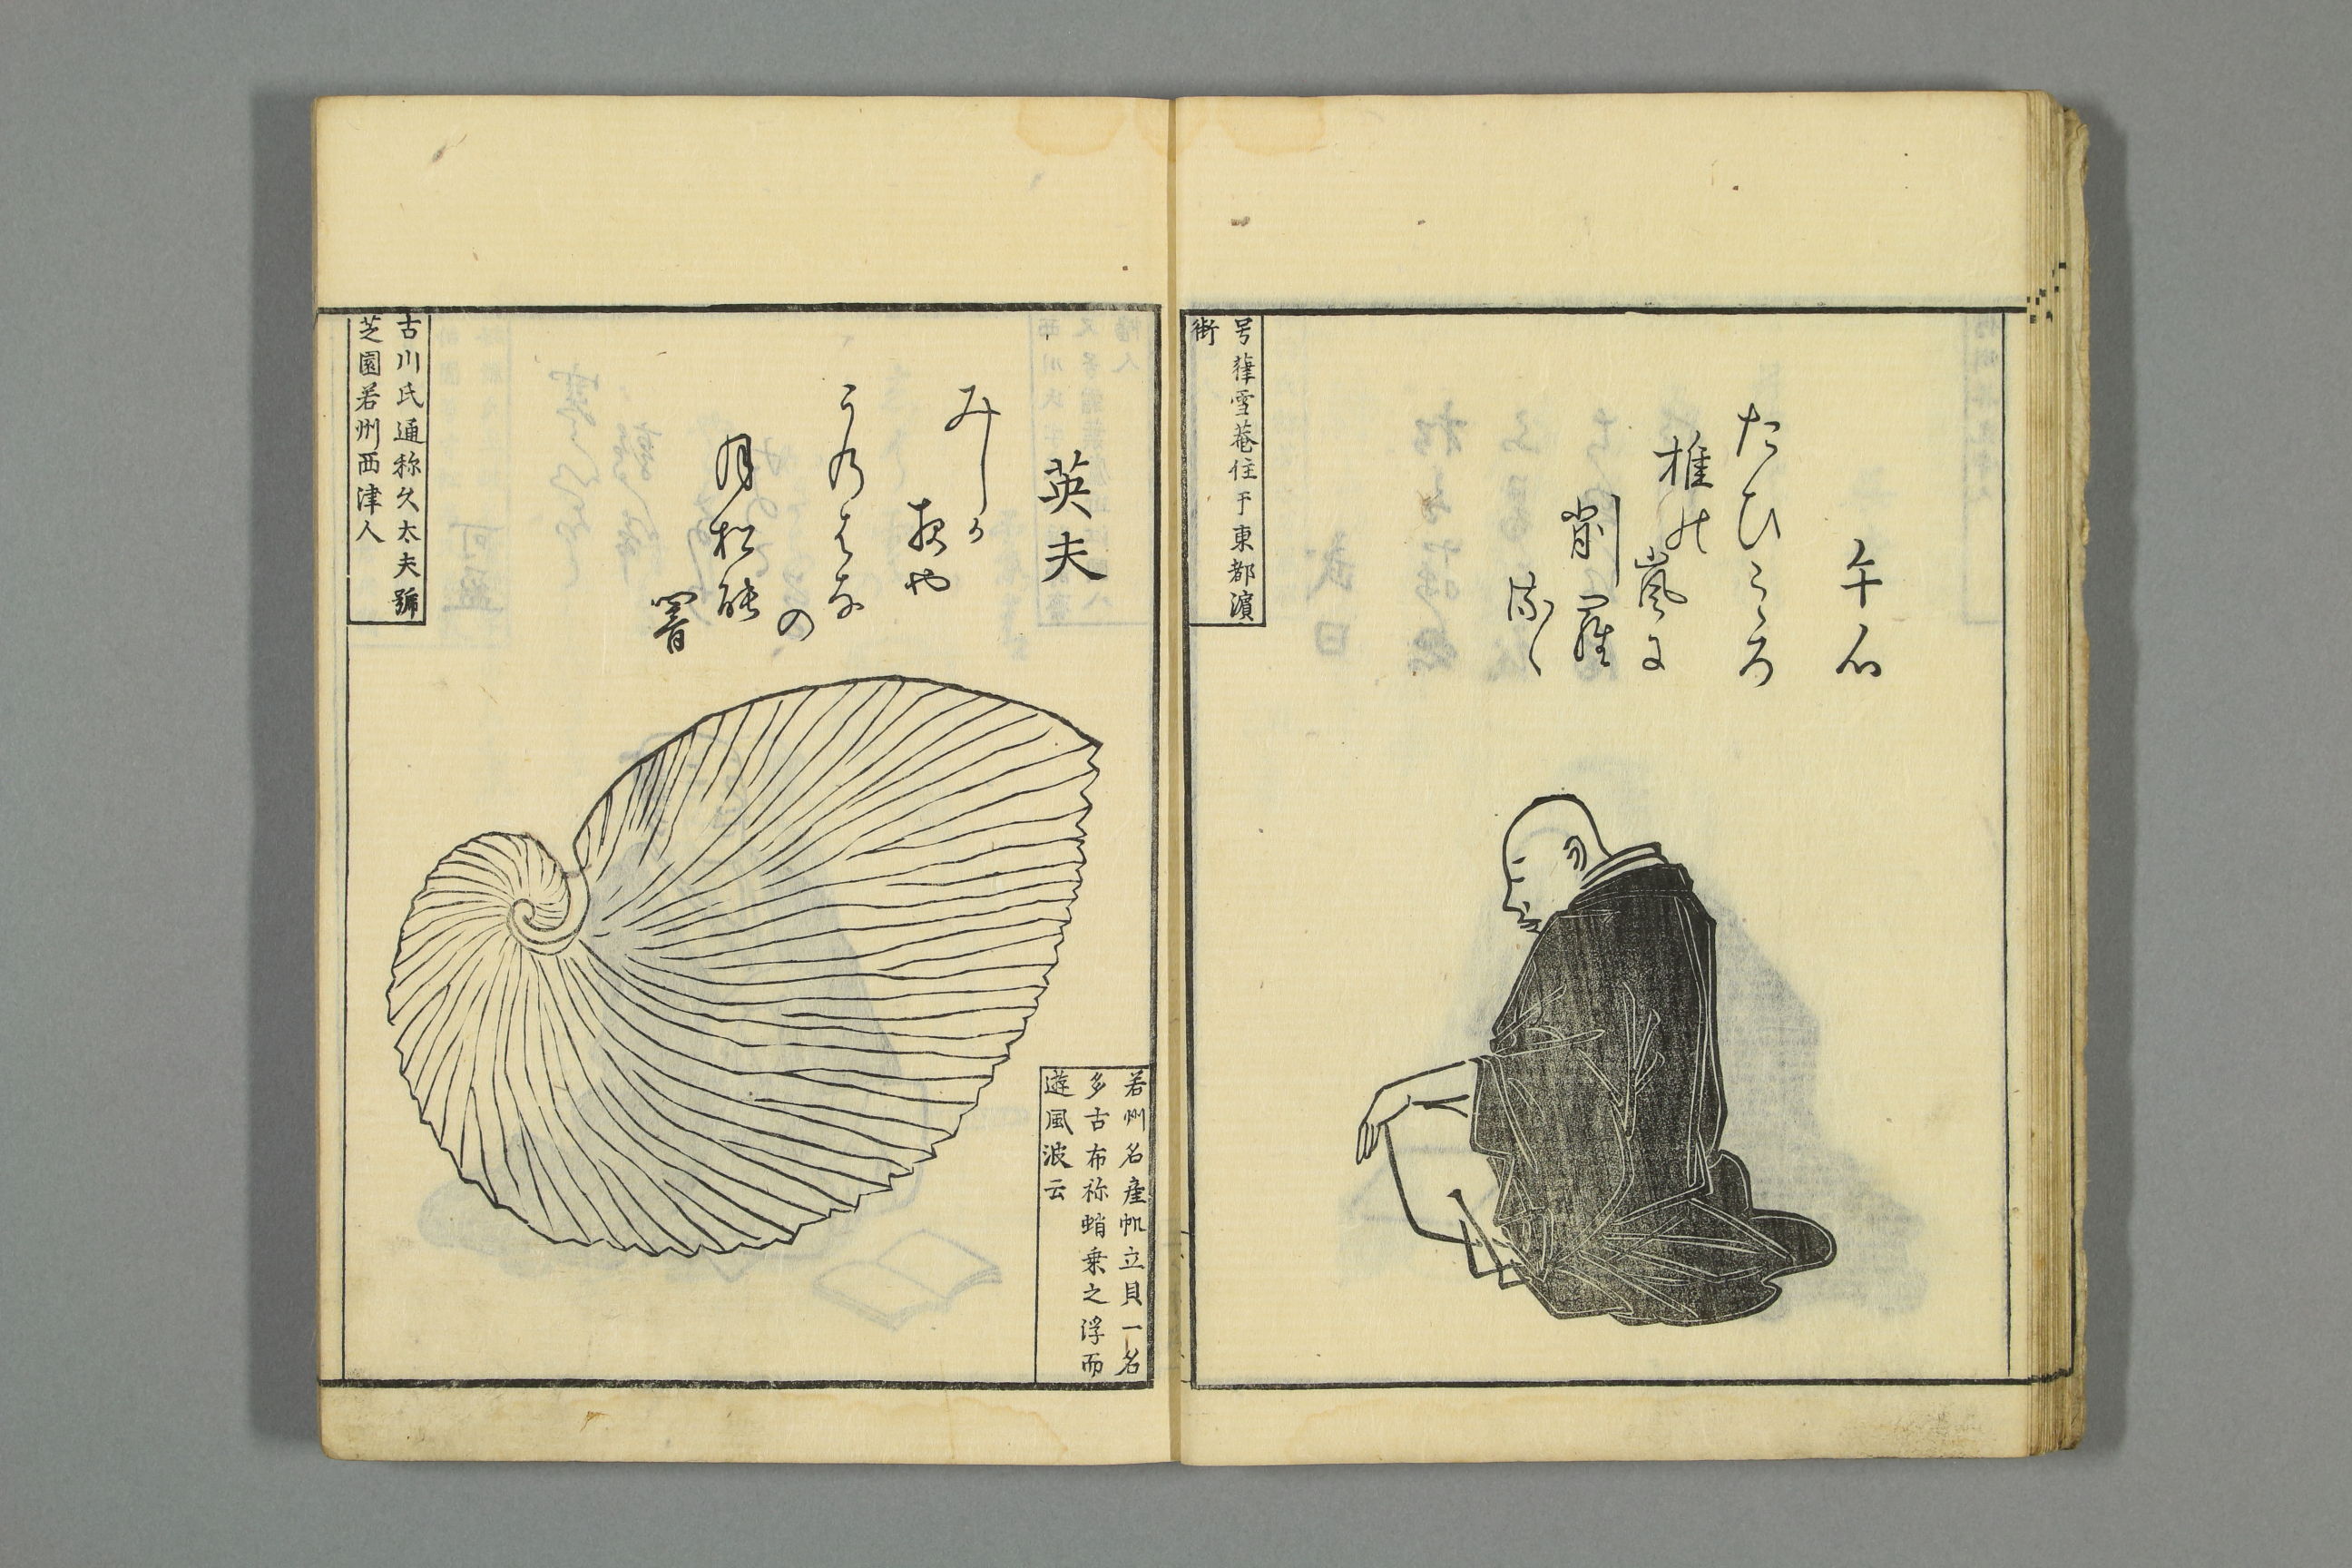 午心
たひこゝろ
椎の
嵐に
削羅
流ゝ
号葎雪菴住于東都濱
街
英夫
みしか
夜や
うのはな
の
月松能
闇
若州名産帆立貝一名
多古布称蛸乗之浮而
遊風波云
古川氏通称久太夫號
芝園若州西津人